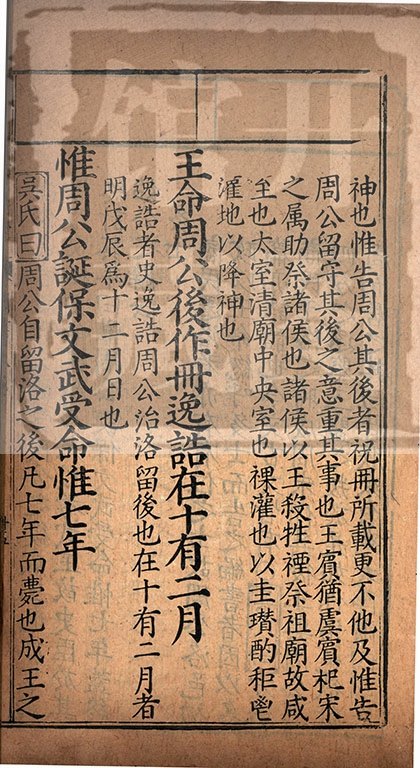 神也惟告周公其後者祝冊所載更不他及惟告
周公留守其後之意重其事也王賓猶虞賓杞宋
之属助祭諸侯也諸侯以王殺牲禋祭祖廟故咸
至也太室清廟中央室也祼灌也以圭瓚酌秬鬯
灌地以降神也
王命周公後作冊逸誥在十有二月
逸誥者史逸誥周公治洛留後也在十有二月者
明戊辰為十二月日也
惟周公誕保文武受命惟七年
吳氏曰周公自留洛之後凡七年而薨也成王之